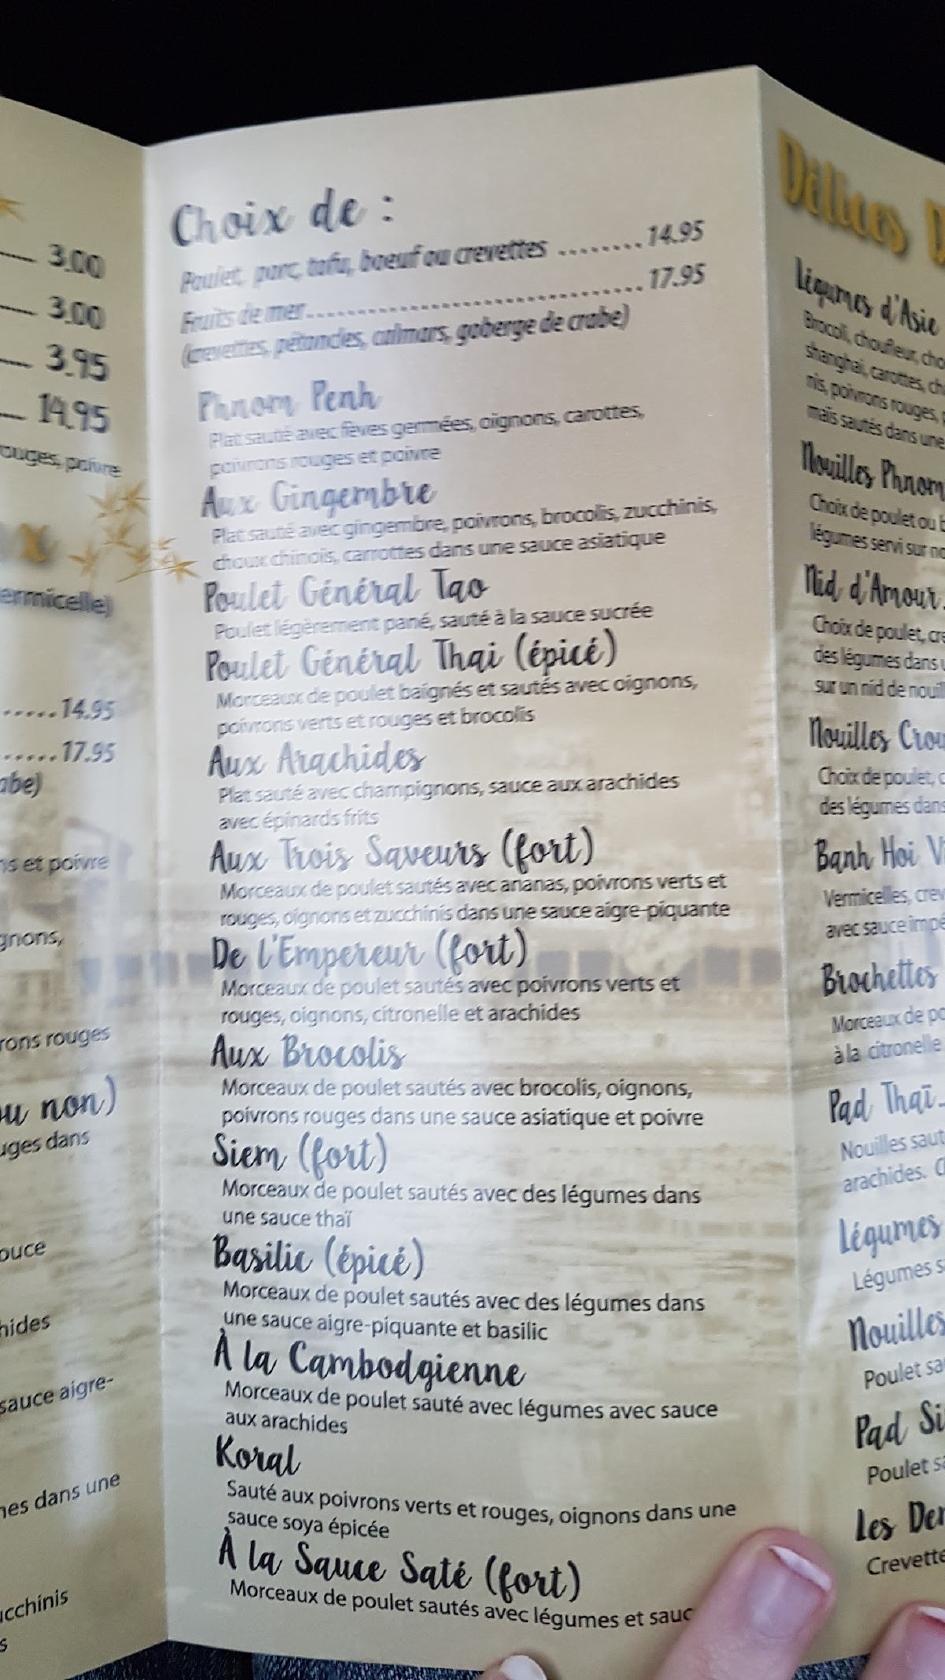 3.00
3.00
3.95
14.95
poivre
ermicelle)
.....14.95
.....17.95
abe)
ns et poivre
gnons,
rons rouges
ou non)
uges dans
ouce
hides
sauce aigre-
nes dans une
ucchinis
s
Choix de :
Poulet, porc, tofu, boeuf ou crevettes ........14.95
Fruits de mer..................................17.95
(crevettes, pétoncles, calmars, goberge de crabe)
Phnom Penh
Plat sauté avec fèves germées, oignons, carottes,
poivrons rouges et poivre
Aux Gingembre
Plat sauté avec gingembre, poivrons, brocolis, zucchinis,
choux chinois, carrottes dans une sauce asiatique
Poulet Général Tao
Poulet légèrement pané, sauté à la sauce sucrée
Poulet Général Thai (épicé)
Morceaux de poulet baignés et sautés avec oignons,
poivrons verts et rouges et brocolis
Aux Arachides
Plat sauté avec champignons, sauce aux arachides
avec épinards frits
Aux Trois Saveurs (fort)
Morceaux de poulet sautés avec ananas, poivrons verts et
rouges, oignons et zucchinis dans une sauce aigre-piquante
De l'Empereur (fort)
Morceaux de poulet sautés avec poivrons verts et
rouges, oignons, citronelle et arachides
Aux Brocolis
Morceaux de poulet sautés avec brocolis, oignons,
poivrons rouges dans une sauce asiatique et poivre
Siem (fort)
Morceaux de poulet sautés avec des légumes dans
une sauce thaï
Basilic (épicé)
Morceaux de poulet sautés avec des légumes dans
une sauce aigre-piquante et basilic
À la Cambodgienne
Morceaux de poulet sauté avec légumes avec sauce
aux arachides
Koral
Sauté aux poivrons verts et rouges, oignons dans une
sauce soya épicée
À la Sauce Saté (fort)
Morceaux de poulet sautés avec légumes et sauc
Délices D
Légumes d'Asie
Brocoli, choufleur, cho
shanghai, carottes, ch
nis, poivrons rouges,
maïs sautés dans une
Nouilles Phnom
Choix de poulet ou b
légumes servi sur no
Nid d'Amour
Choix de poulet, cre
des légumes dans u
sur un nid de nouil
Nouilles Crou
Choix de poulet, c
des légumes dans
Banh Hoi V
Vermicelles, crev
avec sauce impé
Brochettes
Morceaux de po
à la citronelle
Pad Thaï
Nouilles saut
arachides. C
Légumes
Légumes s
Nouilles
Poulet sa
Pad Si
Poulet s
Les Der
Crevette